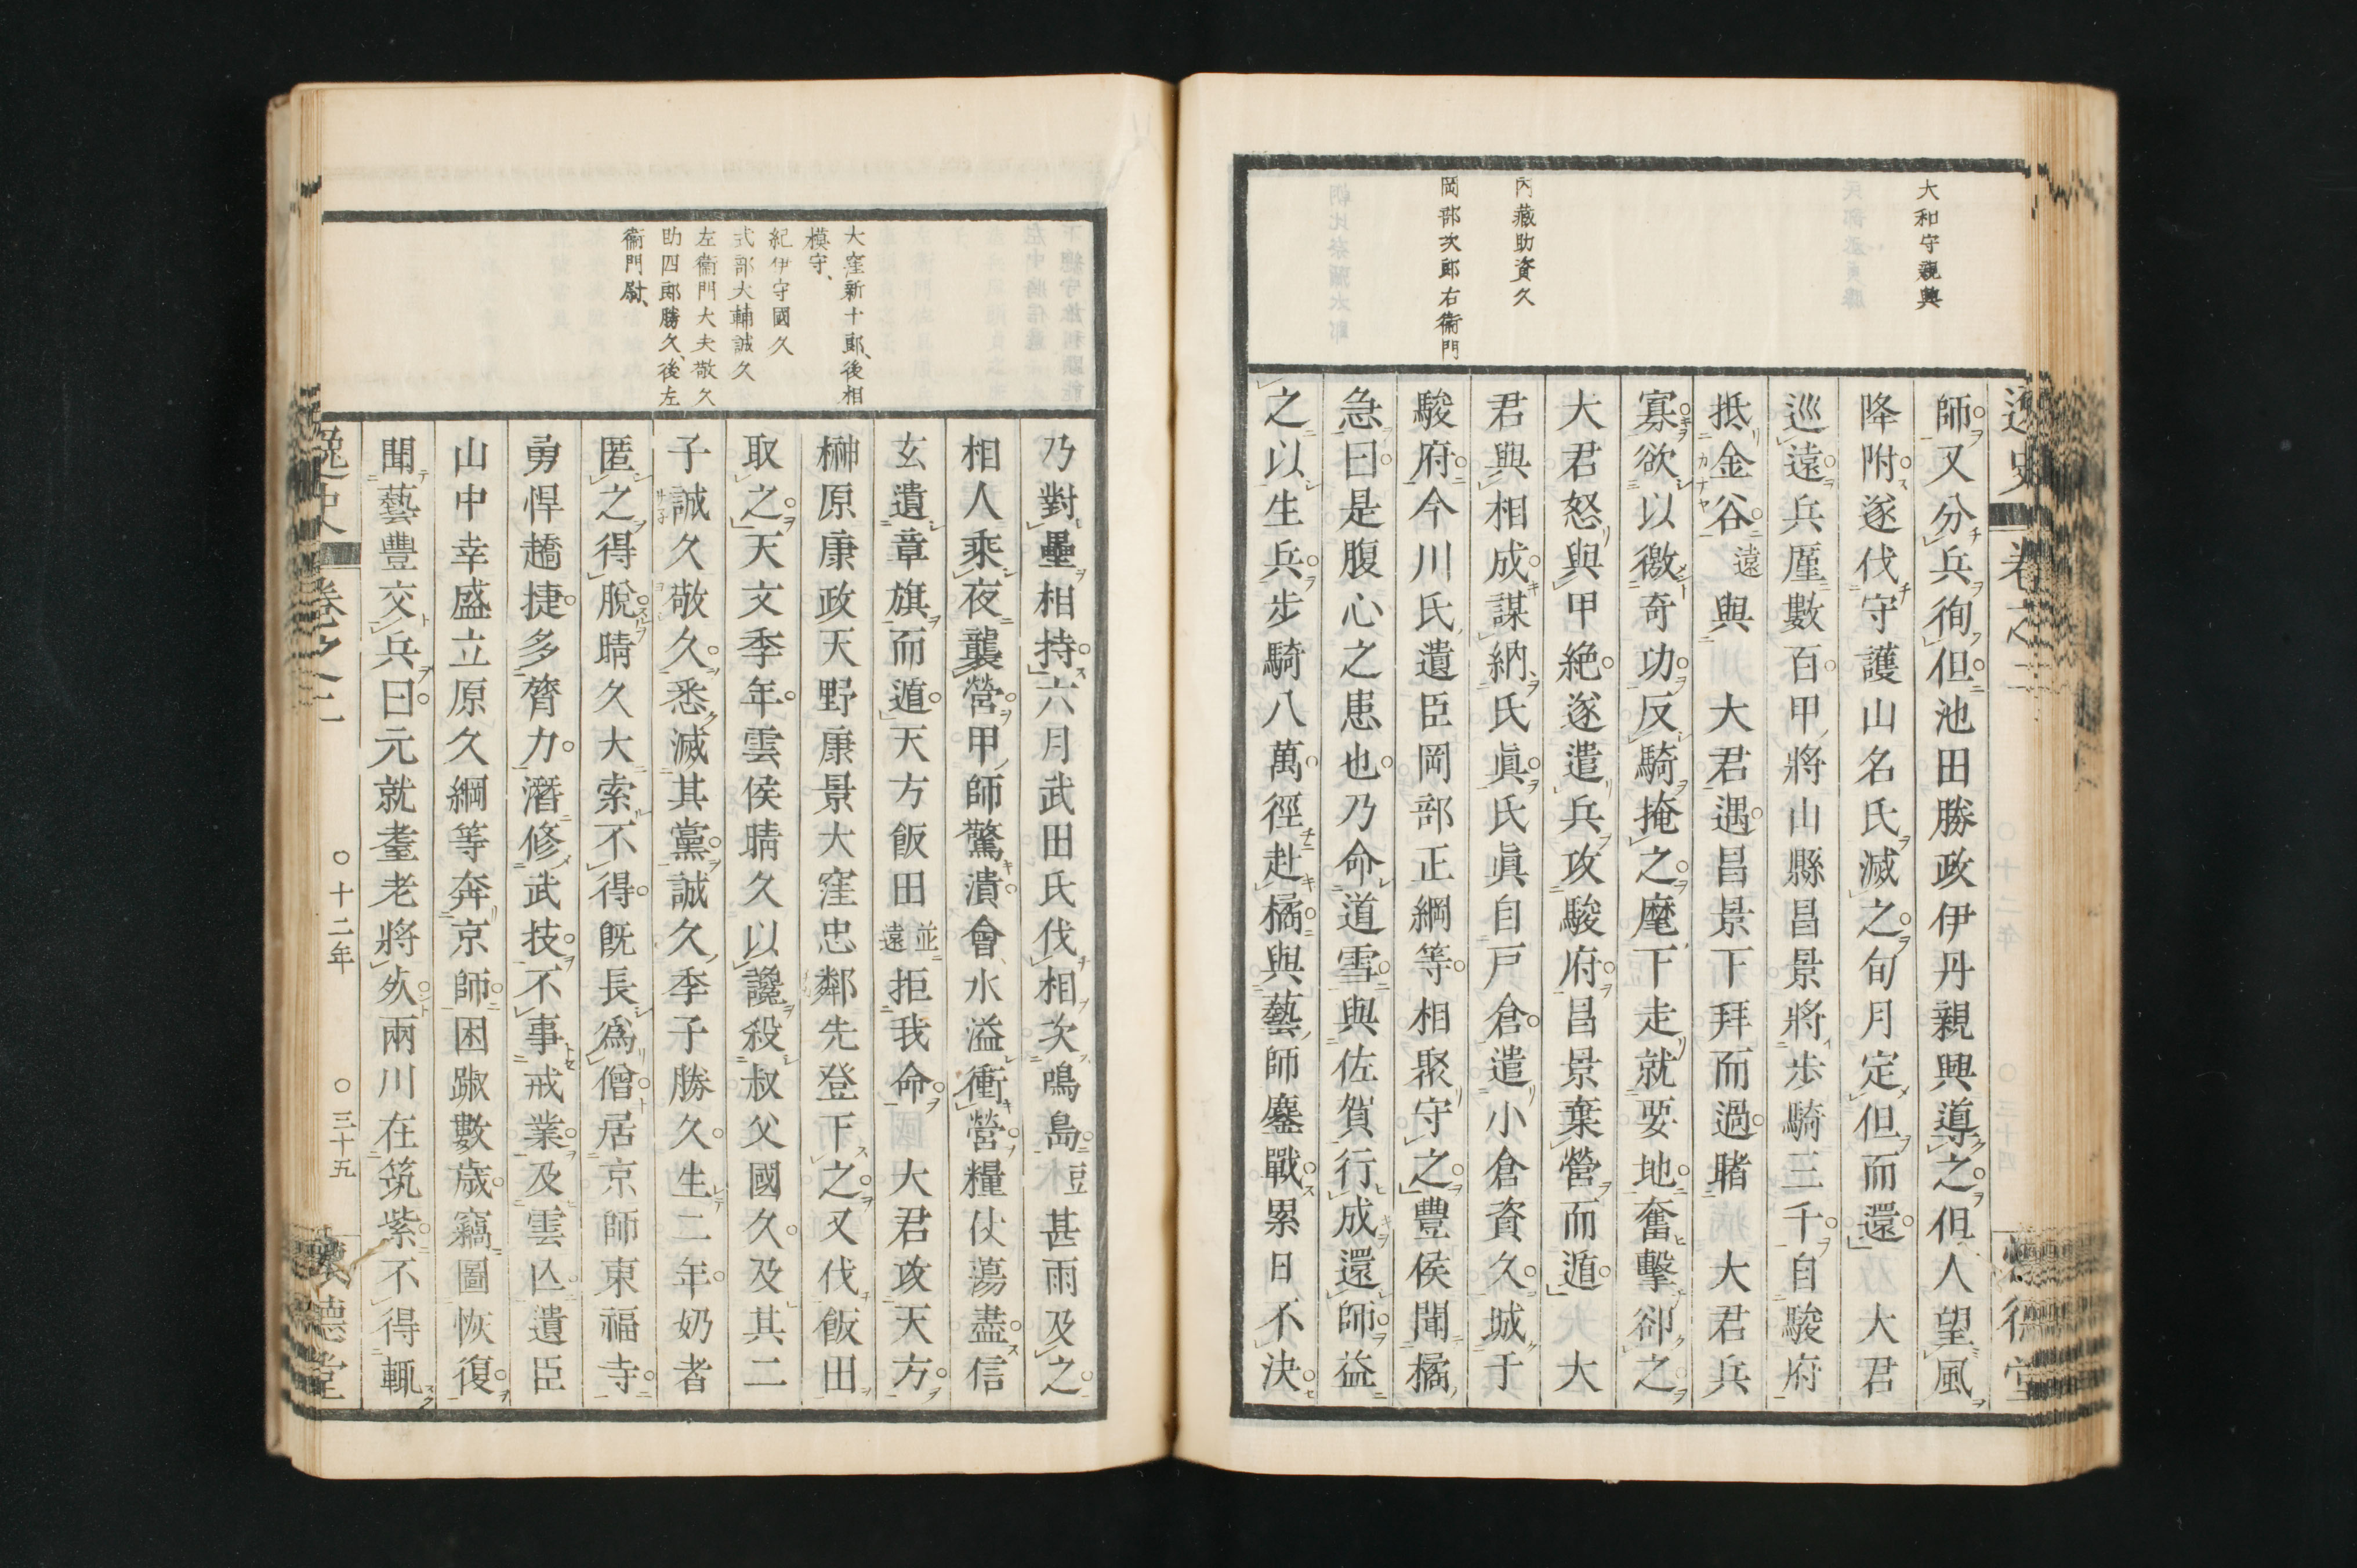 大和守親興
内藏助資久
岡部次郎右衞門
師又分兵徇但池田勝政伊丹親興導之但人望風
降附遂伐守護山名氏滅之旬月定但而還　大君
巡遠兵厪數百甲將山縣昌景將歩騎三千自駿府
抵金谷遠與　大君遇昌景下拜而過睹　大君兵
寡欲以徼奇功反騎掩之麾下走就要地奮擊卻之
大君怒與甲絶遂遣兵攻駿府昌景棄營而遁　大
君與相成謀納氏眞氏眞自戸倉遣小倉資久城于
駿府今川氏遺臣岡部正綱等相聚守之豐侯聞橘
急曰是腹心之患也乃命道雪與佐賀行成還師益
之以生兵歩騎八萬徑赴橘與藝師鏖戰累日不決
大窪新十郎、後相
模守、
紀伊守國久
式部大輔誠久
左衞門大夫敬久
助四郎勝久、後左
衞門尉、
乃對壘相持六月武田氏伐相次鳴島豆甚雨及之
相人乘夜襲營甲師驚潰會水溢衝營糧仗蕩盡信
玄遺章旗而遁天方飯田並遠拒我命　大君攻天方
榊原康政天野康景大窪忠鄰先登下之又伐飯田
取之天文季年雲侯晴久以讒殺叔父國久及其二
子誠久敬久悉滅其黨誠久季子勝久生二年奶者
匿之得脫晴久大索不得既長爲僧居京師東福寺
勇悍趫捷多膂力潛修武技不事戒業及雲亾遺臣
山中幸盛立原久綱等奔京師困踧數歳竊圖恢復
聞藝豐交兵曰元就耋老將死兩川在筑紫不得輒
逸史　卷之三　○十二年　○三十五　懷德堂